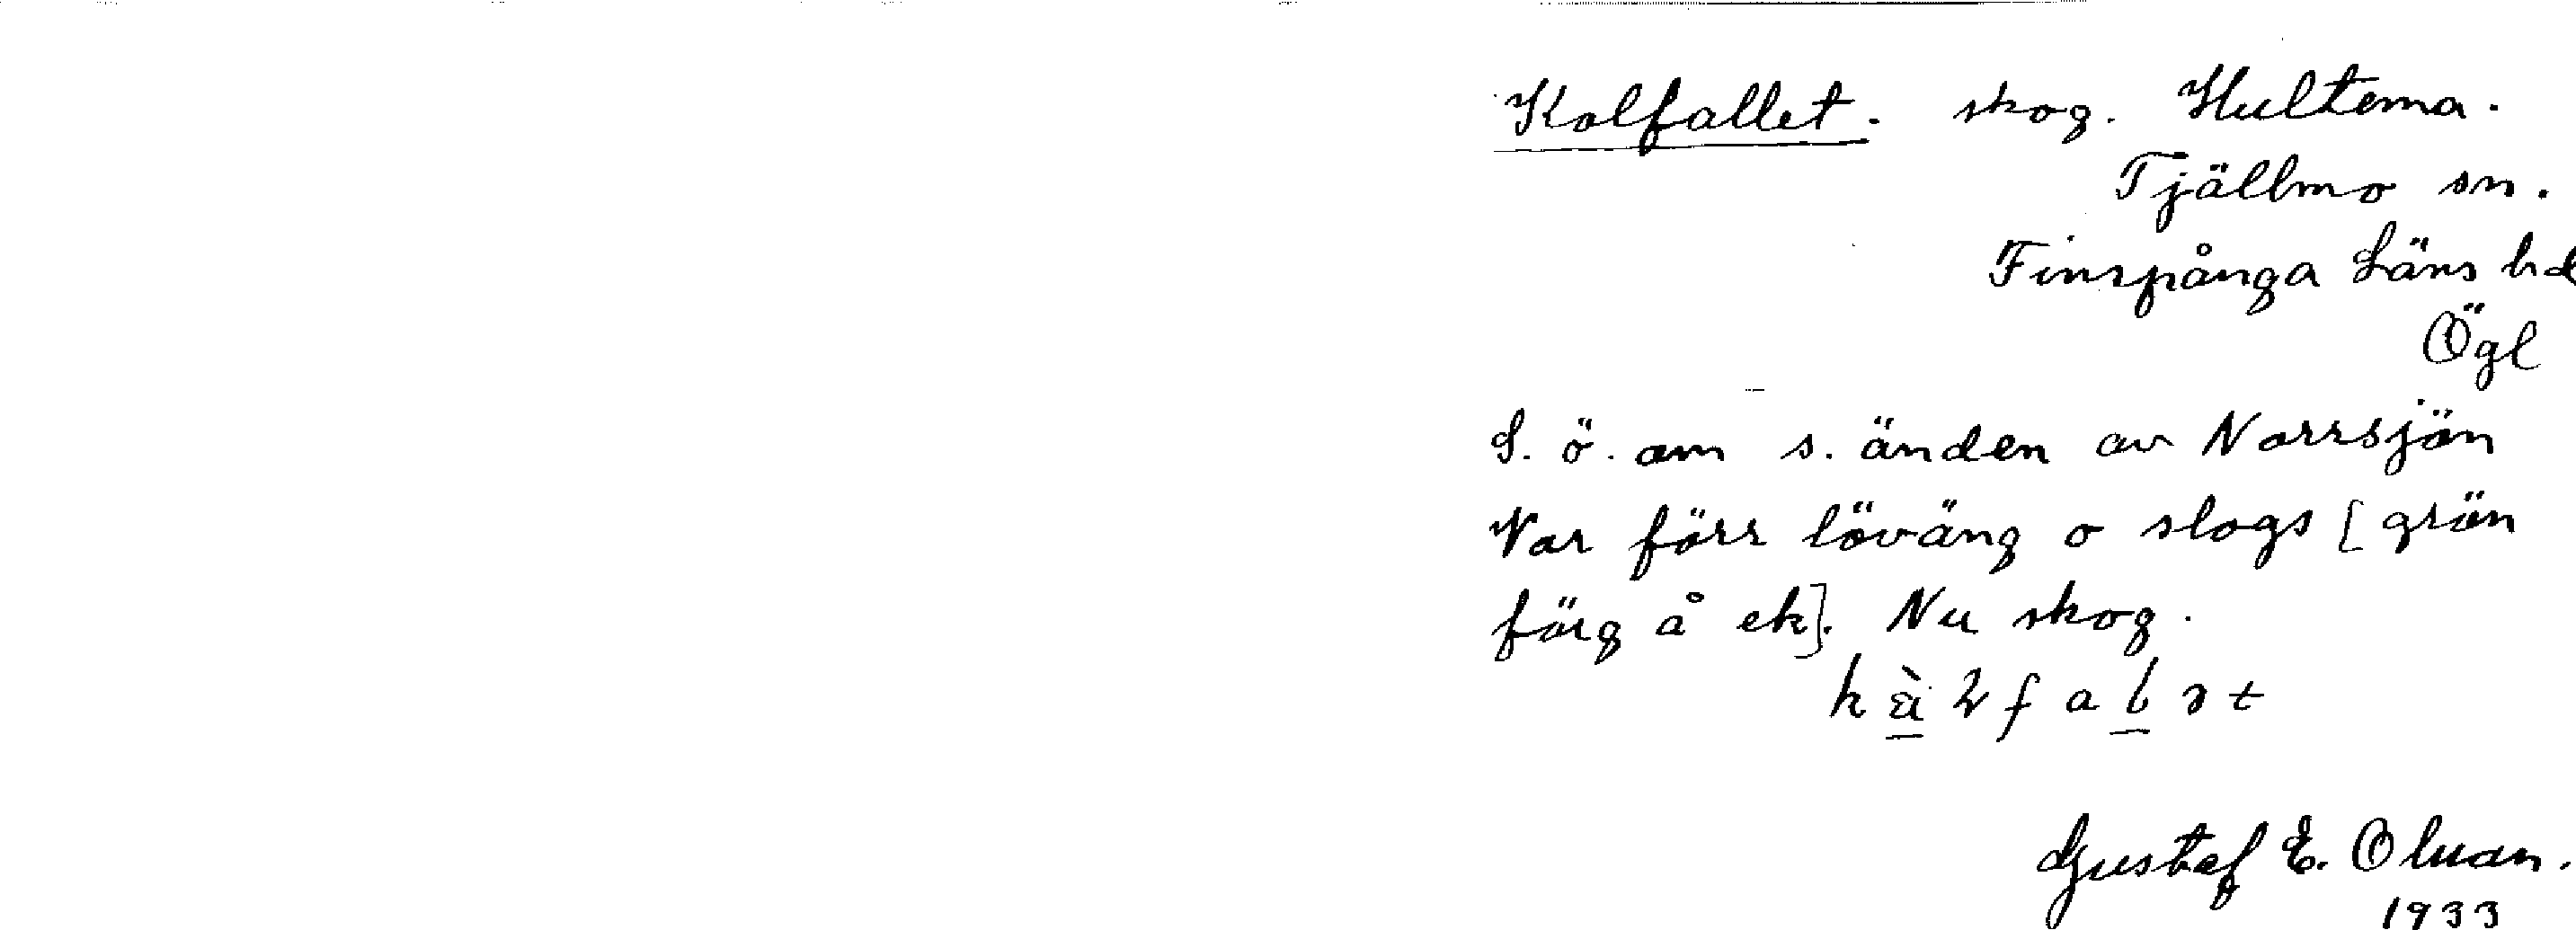 Kolfallet. skog. Hultema.
Tjällmo sn.
Finspånga Läns hd
Ögl
S. ö. om s. änden av Norrsjön
Var förr löväng o slogs [grön
färg å ek]. Nu skog.
Gustaf E.
1933